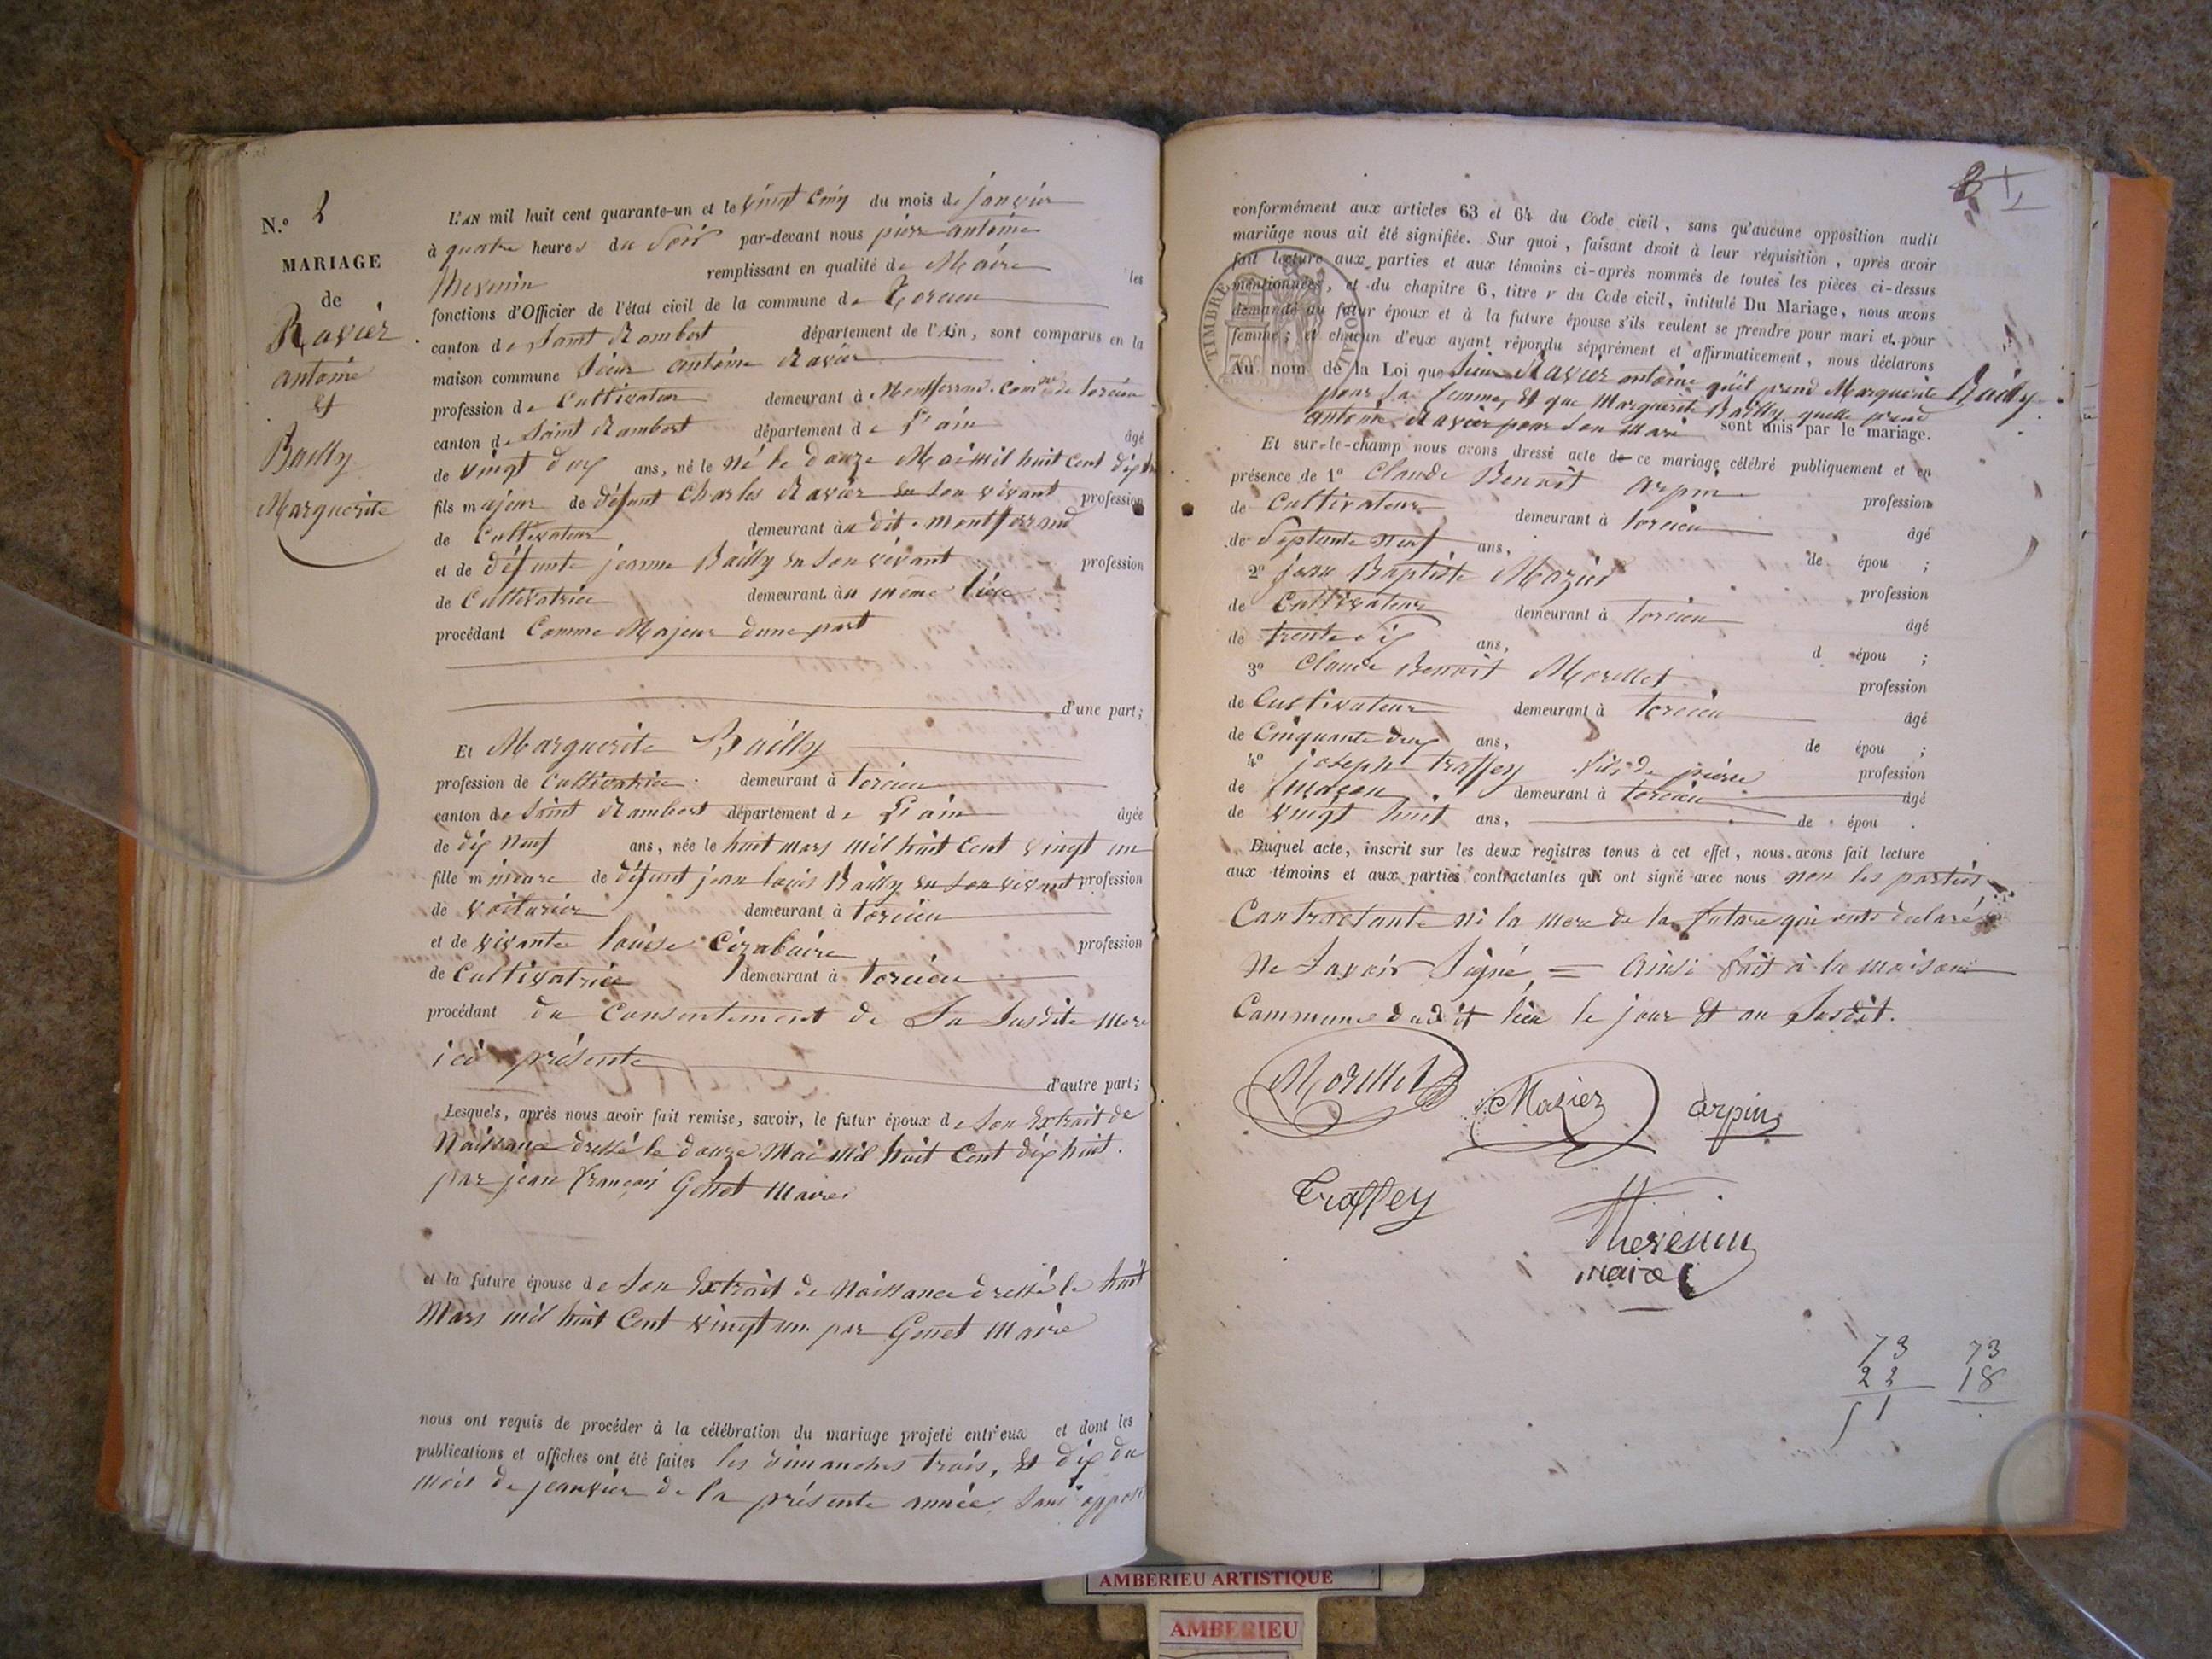 N.º 2
MARIAGE
de
Ravier
antoine
et
Bailly
Marguerite
L'AN mil huit cent quarante-un et le vingt cinq du mois de janvier
à quatre heures du Soir par-devant nous pierre antoine
thevenin remplissant en qualité de Maire les
fonctions d'Officier de l'état civil de la commune de Torcieu
canton de Saint Rambert département de l'Ain, sont comparus en la
maison commune Sieur antoine Ravier
profession de Cultivateur demeurant à Montferrand. Comne de torcieu
canton de Saint Rambert département de L'ain âgé
de vingt deux ans, né le né le douze Mai mil huit cent dix
fils majeur de défunt Charles Ravier en son vivant profession
de Cultivateur demeurant au dit. montferrand
et de défunte jeanne Bailly en son vivant profession
de Cultivatrice demeurant au même lieu
procédant Comme Majeur dune part
d'une part;
Et Marguerite Bailly
profession de Cultivatrice demeurant à torcieu
canton de Saint Rambert département de L'ain âgée
de dix neuf ans, née le huit mars mil huit cent vingt un
fille mineure de défunt jean louis Bailly en son vivant profession
de voiturier demeurant à torcieu
et de vivante louise profession
de Cultivatrice demeurant à torcieu
procédant du Consentement de Sa Susdite mere
ici présente
d'autre part;
Lesquels, après nous avoir fait remise, savoir, le futur époux de Son Extrait de
Naissance dressé le douze Mai mil huit Cent dix huit.
par jean françois Gonet Maire
et la future épouse de Son Extrait de Naissance dressé le huit
Mars mil huit Cent vingt un par Gonet Maire
nous ont requis de procéder à la célébration du mariage projeté entr'eux et dont les
publications et affiches ont été faites les dimanches trois, et dix du
mois de jeanvier de la présente année, Sans
conformément aux articles 63 et 64 du Code civil, sans qu'aucune opposition audit
mariage nous ait été signifiée. Sur quoi, faisant droit à leur réquisition, après avoir
fait lecture aux parties et aux témoins ci-après nommés de toutes les pièces ci-dessus
mentionnées, et du chapitre 6, titre v du Code civil, intitulé Du Mariage, nous avons
demandé au futur époux et à la future épouse s'ils veulent se prendre pour mari et pour
femme; et chacun d'eux ayant répondu séparément et affirmativement, nous déclarons
Au nom de la Loi que Sieur RAVIER antoine qu'il prend Marguerite Bailly
pour Sa femme, et que Marguerite Bailly quelle prend
antoine Ravier pour Son Mari sont unis par le mariage.
Et sur-le-champ nous avons dressé acte de ce mariage célébré publiquement et en
présence de 1º Claude Benoit arpin profession
de Cultivateur demeurant à torcieu âgé
de Septante neuf ans, de épou ;
2º jean Baptiste Mazier profession
de Cultivateur demeurant à torcieu âgé
de trente Six ans, d épou ;
3º Claude Benoit Morellet profession
de Cultivateur demeurant à torcieu âgé
de Cinquante deux ans, de épou ;
4º joseph traffey fils de pierre profession
de maçon demeurant à torcieu âgé
de vingt huit ans, de épou .
Duquel acte, inscrit sur les deux registres tenus à cet effet, nous avons fait lecture
aux témoins et aux parties contractantes qui ont signé avec nous non les parties
Contractante ni la mere de la future qui onts declaré
Ne Savoir Signé, = Ainsi fait à la maison
Commune dudit lieu le jour et an Susdit.
TIMBRE ROYAL
70c
Morellet
Mazier
arpin
Traffey
Thevenin
maire
73 73
22 18
51
AMBERIEU ARTISTIQUE
AMBERIEU